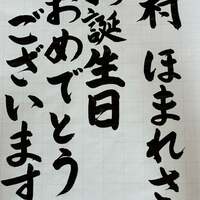 村 ほまれさ
誕生日
おめでとう
ございます